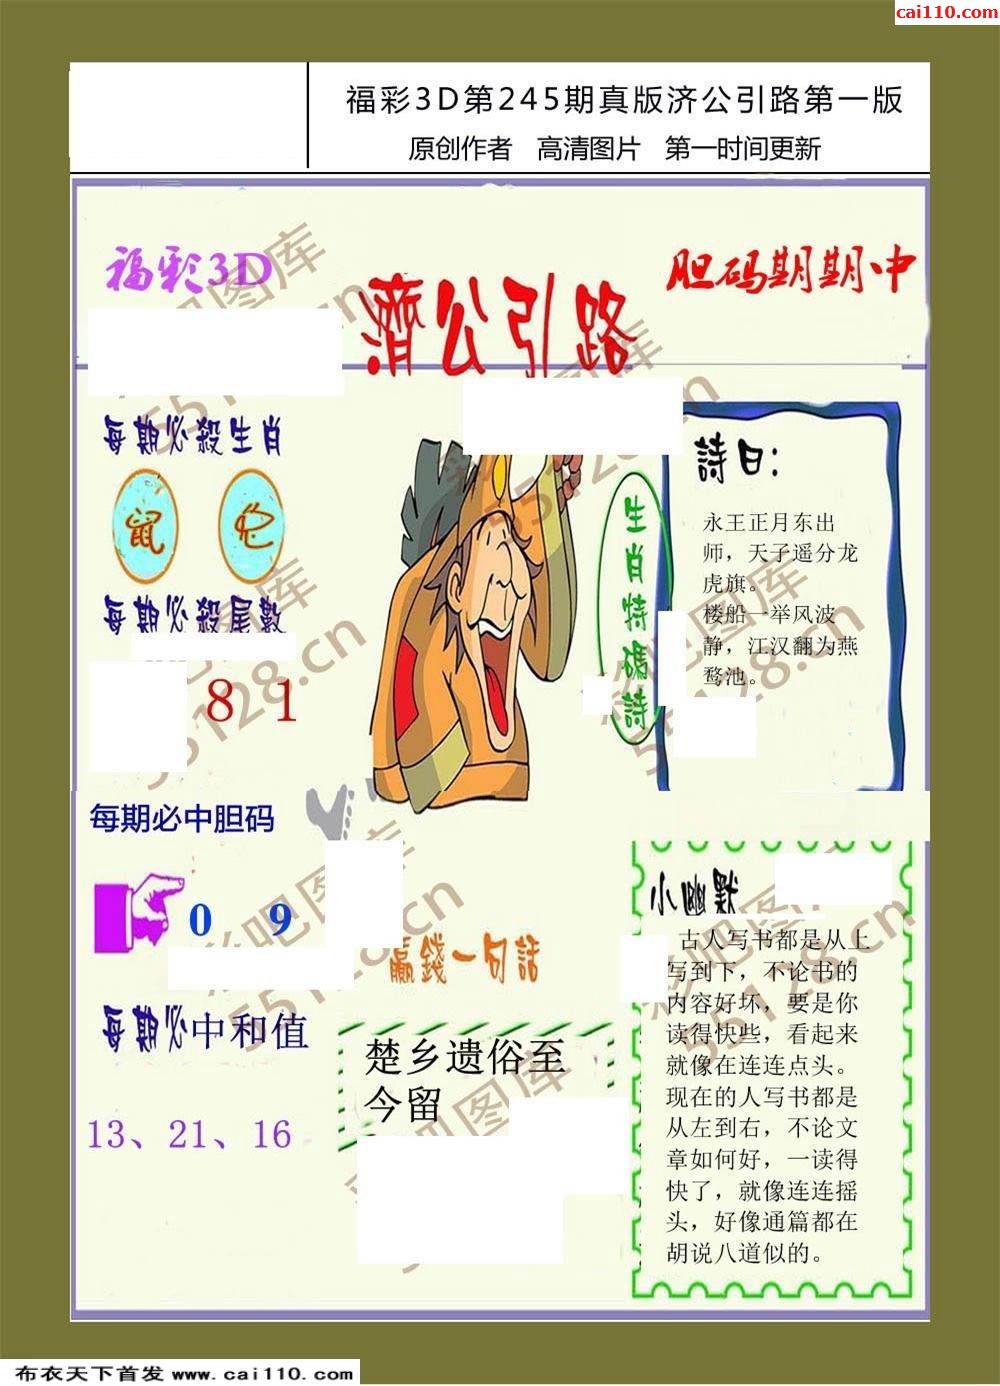 cai110.com
福彩3D第245期真版济公引路第一版
原创作者 高清图片 第一时间更新
福彩3D
濟公引路
胆码期期中
每期必殺生肖
鼠
每期必殺尾數
8 1
每期必中胆码
0 9
每期必中和值
13、21、16
生肖特碼詩
詩曰:
永王正月东出
师，天子遥分龙
虎旗。
楼船一举风波
静，江汉翻为燕
鹜池。
贏錢一句話
楚乡遗俗至
今留
小幽默
古人写书都是从上
写到下，不论书的
内容好坏，要是你
读得快些，看起来
就像在连连点头。
现在的人写书都是
从左到右，不论文
章如何好，一读得
快了，就像连连摇
头，好像通篇都在
胡说八道似的。
彩吧图库
55128.cn
布衣天下首发 www.cai110.com